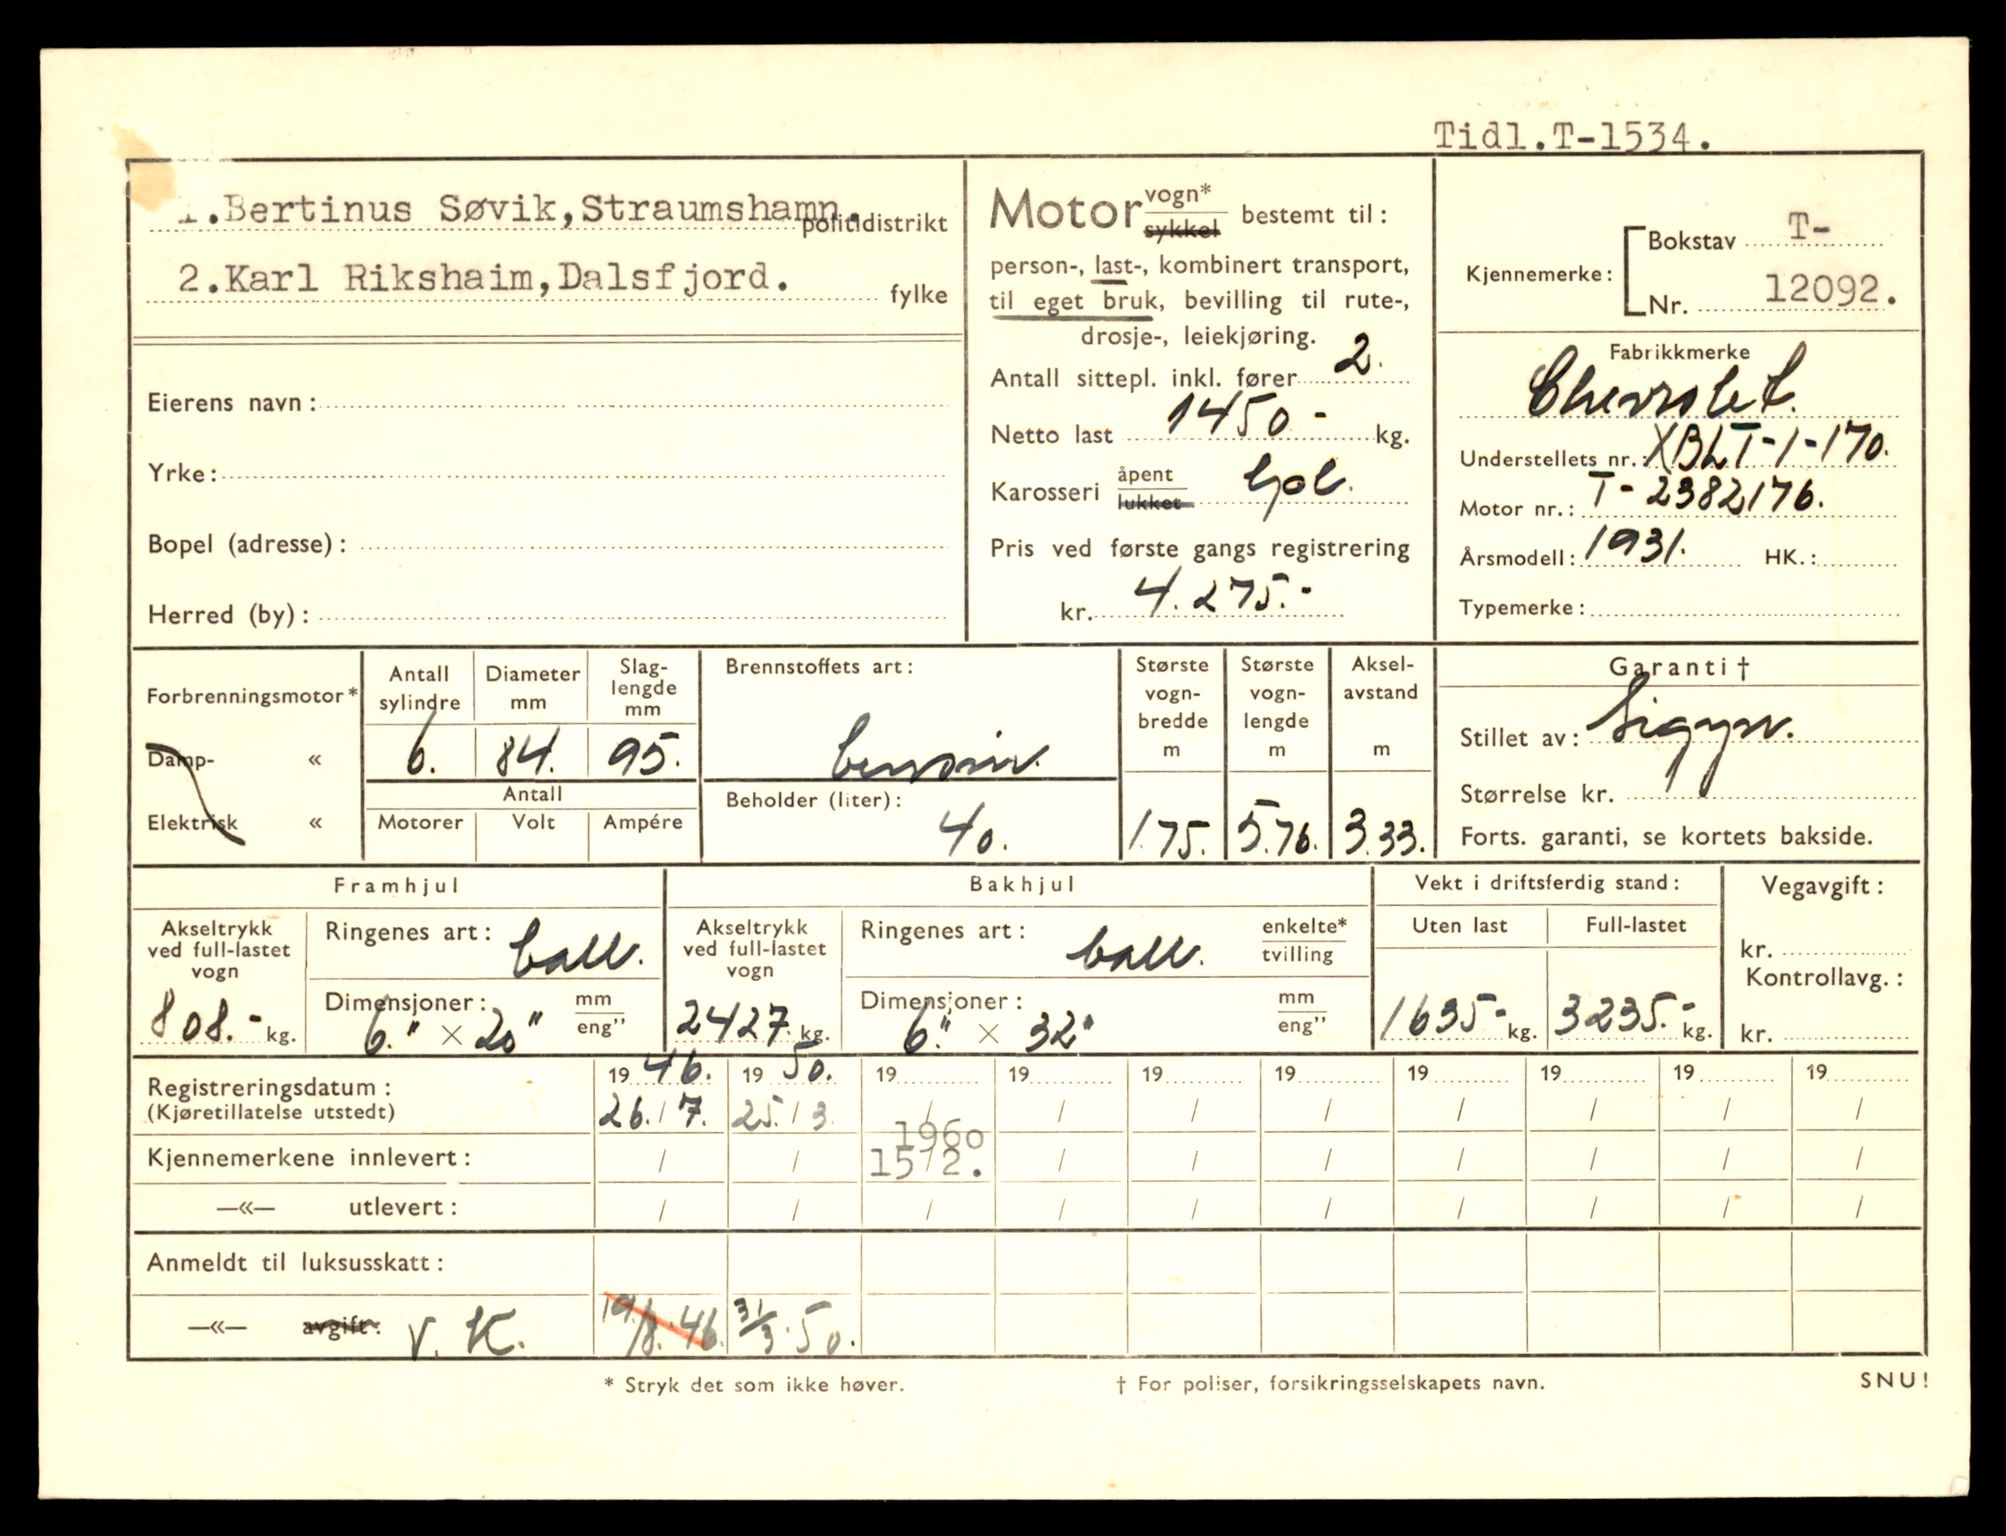 Tidl.T-1534.
1.Bertinus Søvik,Straumshamn. politidistrikt
2.Karl Rikshaim,Dalsfjord. fylke
Eierens navn:
Yrke:
Bopel (adresse):
Herred (by):
Motor vogn* sykkel bestemt til:
person-, last-, kombinert transport,
til eget bruk, bevilling til rute-,
drosje-, leiekjøring.
Antall sittepl. inkl. fører 2.
Netto last 1450- kg.
Karosseri åpent lukket
Pris ved første gangs registrering
kr. 4.275.-
Kjennemerke: Bokstav T-
Nr. 12092.
Fabrikkmerke
Chevrolet.
Understellets nr.: XBLT-1-170.
Motor nr.: T-2382176.
Årsmodell: 1931. HK.:
Typemerke:
Forbrenningsmotor*
Damp- «
Elektrisk «
Antall sylindre
6.
Diameter mm
84.
Slag-lengde mm
95.
Antall
Motorer Volt Ampére
Brennstoffets art:
bensin.
Beholder (liter):
40.
Største vogn-bredde m
1.75.
Største vogn-lengde m
5.76.
Aksel-avstand m
3.33.
Garanti†
Stillet av: Sigyn.
Størrelse kr.
Forts. garanti, se kortets bakside.
Framhjul
Akseltrykk ved full-lastet vogn
808.- kg.
Ringenes art: ball.
Dimensjoner: mm eng”
6." × 20"
Bakhjul
Akseltrykk ved full-lastet vogn
2427. kg.
Ringenes art: ball. enkelte* tvilling
Dimensjoner: mm eng”
6." × 32"
Vekt i driftsferdig stand:
Uten last Full-lastet
1635- kg. 3235.- kg.
Vegavgift:
kr.
Kontrollavg.:
kr.
Registreringsdatum: 19 46. 19 50. 19 19 19 19 19 19 19 19
(Kjøretillatelse utstedt) 26./7. 25./3. / / / / / / / /
1960
Kjennemerkene innlevert: / / 15/2. / / / / / / /
—«— utlevert: / / / / / / / / / /
Anmeldt til luksusskatt:
—«— avgift: V. K. 19./8.46. 31/3.50.
* Stryk det som ikke høver. † For poliser, forsikringsselskapets navn. SNU!